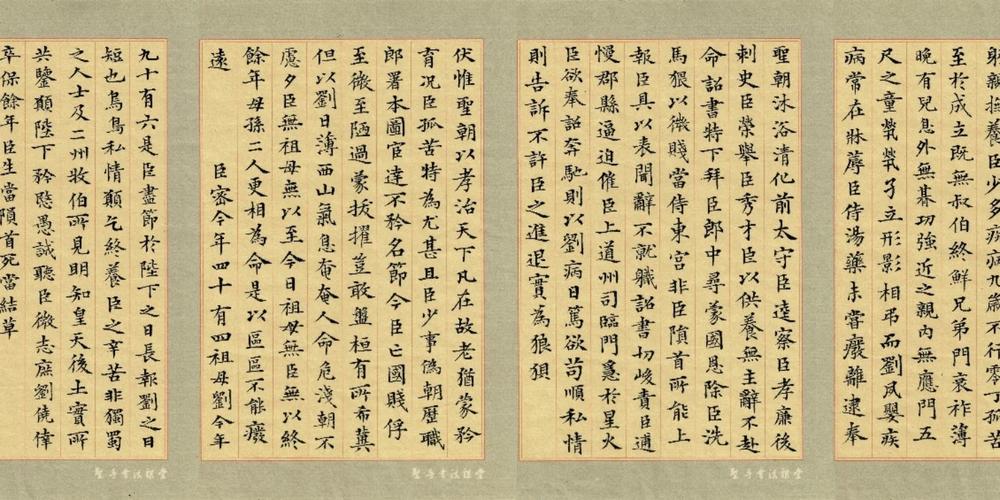 躬親撫養臣少多疾病九歲不行零丁孤苦
至於成立既無叔伯終鮮兄弟門衰祚薄
晚有兒息外無朞功強近之親內無應門五
尺之童煢煢孑立形影相弔而劉夙嬰疾
病常在牀蓐臣侍湯藥未嘗廢離逮奉
聖朝沐浴清化前太守臣逵察臣孝廉後
刺史臣榮舉臣秀才臣以供養無主辭不赴
命詔書特下拜臣郎中尋蒙國恩除臣洗
馬猥以微賤當侍東宮非臣隕首所能上
報臣具以表聞辭不就職詔書切峻責臣逋
慢郡縣逼迫催臣上道州司臨門急於星火
臣欲奉詔奔馳則以劉病日篤欲苟順私情
則告訴不許臣之進退實為狼狽
伏惟聖朝以孝治天下凡在故老猶蒙矜
育況臣孤苦特為尤甚且臣少事偽朝歷職
郎署本圖宦達不矜名節今臣亡國賤俘
至微至陋過蒙拔擢豈敢盤桓有所希冀
但以劉日薄西山氣息奄奄人命危淺朝不
慮夕臣無祖母無以至今日祖母無臣無以終
餘年母孫二人更相為命是以區區不能廢
遠
臣密今年四十有四祖母劉今年
九十有六是臣盡節於陛下之日長報劉之日
短也烏鳥私情願乞終養臣之辛苦非獨蜀
之人士及二州牧伯所見明知皇天後土實所
共鑒願陛下矜愍愚誠聽臣微志庶劉僥倖
卒保餘年臣生當隕首死當結草